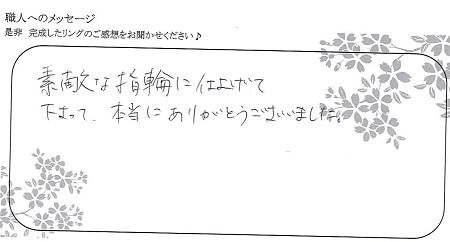 職人へのメッセージ
是非 完成したリングのご感想をお聞かせください♪
素敵な指輪に仕上げて
下さって、本当にありがとうございました。